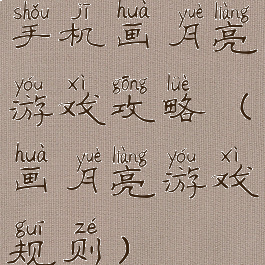 shǒu jī huà yuè liàng
手机画月亮
yóu xì gōng lüè
游戏攻略（
huà yuè liàng yóu xì
画月亮游戏
guī zé
规则）